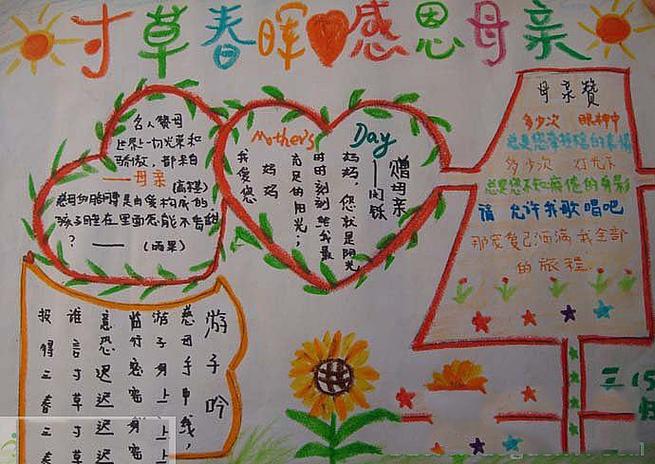 寸草春晖 感恩母亲
名人赞母
世界一切光荣和
骄傲，都来自
——母亲
（高尔基）
慈母的胳膊是由爱构成的
孩子睡在里面怎能不香甜
？ ——（雨果）
Mother's
Day
赠母亲
——闫铄
妈妈，您就是阳光
时时刻刻给我最
充足的阳光；
妈妈
我爱您
母亲赞
多少次 眼神中
总是您亲
多少次 灯光下
总是您不知疲倦的身影
请 允许我歌唱吧
那宠爱已洒满我全部
的旅程
游子吟
慈母手中线，
游子身上
临行密密
意恐迟迟
谁言寸草
报得三春